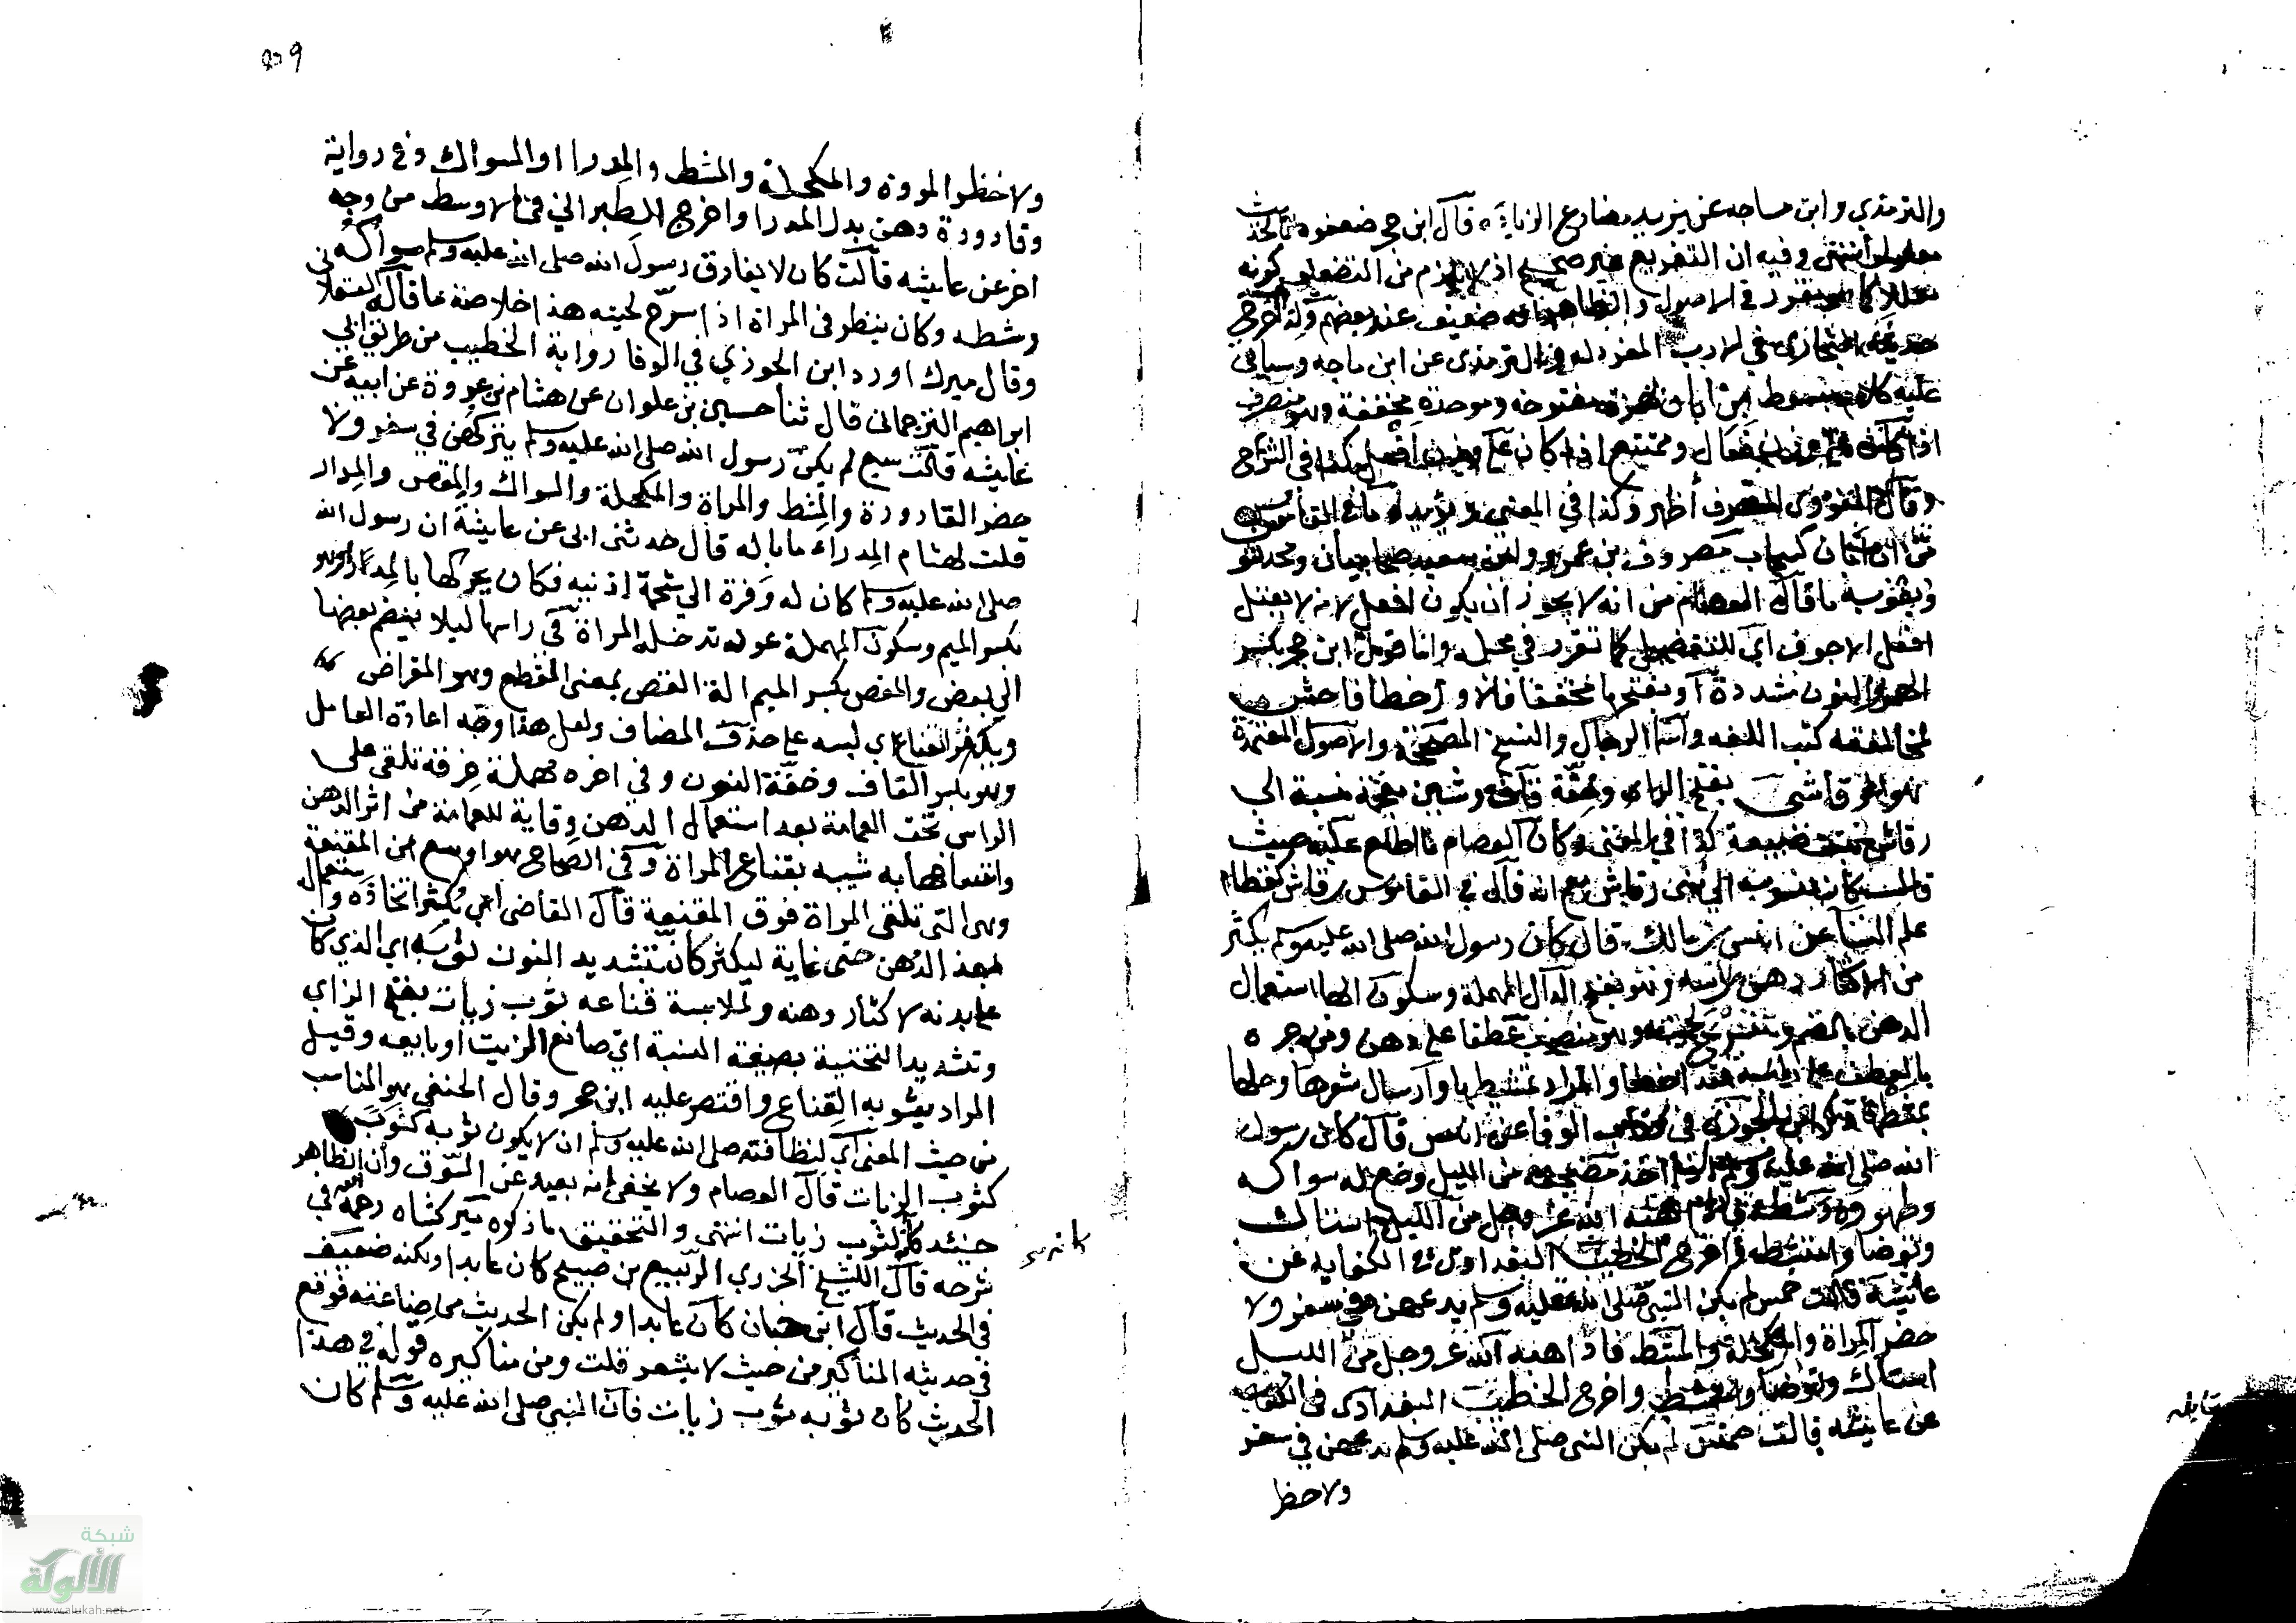 والترمذي وابن ماجه عن يزيد مضارع الزيادة قال ابن حجر ضعفوه فالحديث
معلول انتهى وفيه ان التفريع غير صحيح اذ لا يلزم من التضعيف كونه
معللا كما هو مقرر في الاصول والظاهر انه ضعيف عند بعضهم ولذا اخرج
حديثه البخاري في الادب المفرد له والترمذي عن ابن ماجه وسياتي
عليه كلام مبسوط بن ابان بهمزة مفتوحة وموحدة مخففة وهو منصرف
اذا كان على وزن فعال وممتنع اذا كان على وزن افعل كذا في الشراح
وقال النووي الصرف أظهر وكذا في المغني ويؤيده ما في القاموس
من ان ابان كسحاب مصروف بن عمرو وابن سعيد صحابيان ومحدثو
ويقويه ما قاله العصام من انه لا يجوز ان يكون افعل لانه لا يعتل
افعل الاجوف اي للتفضيل كما تقرر في محله واما قول ابن حجر بكسر
الهمزة والنون مشددة او بفتحها مخففا فلا وخطأ فاحش
لمخالفته كتب اللغة واسماء الرجال والنسخ المصححة والاصول المعتمدة
هو الرقاشي بفتح الراء وخفة قاف وشين معجمة نسبة الى
رقاش بنت ضبيعة كذا في المغني وكان العصام ما اطلع عليه حيث
قال كانه نسوب الى بني رقاش مع انه قال في القاموس رقاش كقطام
علم النساء عن انس بن مالك قال كان رسول الله صلى الله عليه وسلم يكثر
من الاكثار دهن راسه وهو بفتح الدال المهملة وسكون الهاء استعمال
الدهن بالضم وتسريح لحيته وهو منصوب عطفا على دهن ومن جره
بالعطف على راسه فقد اخطا والمراد تمشيطها وارسال شعرها وحلها
بمشطها ذكر ابن الجوزي في كتاب الوفا عن انس قال كان رسول
الله صلى الله عليه وسلم اذا اخذ مضجعه من الليل وضع له سواكه
وطهوره ومشطه فاذا هبه الله عز وجل من الليل استاك
وتوضا وامتشط واخرج الخطيب البغدادي في الكفاية عن
عائشة قالت خمس لم يكن النبي صلى الله عليه وسلم يدعهن في سفر ولا
حضر المراة والمكحلة والمشط فاذا اهبه الله عز وجل من الليل
استاك وتوضا وامتشط واخرج الخطيب البغدادي في الكفاية
عن عايشه قالت خمس لم يكن النبي صلى الله عليه وسلم يدعهن في سفر
ولا حضر
ولا حضر المروة والمكحلة والمشط والمدرا والسواك وفي رواية
وقارورة دهن بدل المدرا واخرج الطبراني في الاوسط من وجه
اخر عن عايشه قالت كان لا يفارق رسول الله صلى الله عليه وسلم سواكه
ومشطه وكان ينظر في المراة اذا سرح لحيته هذا خلاصة ما قاله العسقلاني
وقال ميرك اورد ابن الجوزي في الوفا رواية الخطيب من طريق ابي
ابراهيم الترجماني قال ثنا حسين بن علوان عن هشام بن عروة عن ابيه عن
عايشه قالت سبع لم يكن رسول الله صلى الله عليه وسلم يتركهن في سفر ولا
حضر القارورة والمشط والمراة والمكحلة والسواك والمقص والمدرا
قلت لهشام المدراء ما باله قال حدثني ابي عن عايشة ان رسول الله
صلى الله عليه وسلم كان له وفرة الى شحمة اذنيه فكان يحركها بالمدرا وهو
بكسر الميم وسكون المهملة عود تدخله المراة في راسها ليلا ينضم بعضها
الى بعض والمقص بكسر الميم الة القص بمعنى المقطع وهو المقراض
ويكثر القناع اي لبسه على حذف المضاف ولعل هذا وجه اعادة العامل
وهو بكسر القاف وخفة النون وفي اخره مهملة خرقة تلقى على
الراس تحت العمامة بعد استعمال الدهن وقاية للعمامة من اثر الدهن
واتساخها به شبيه بقناع المراة وفي الصحاح هو اوسع من المقنعة
وهي التي تلقي المراة فوق المقنعة قال القاضي اي يكثر اتخاذه واستعماله
بعد الدهن حتى غاية ليكثر كان بتشديد النون ثوبه اي الذي كان
على بدنه لاكثار دهنه ولملابسة قناعه ثوب زيات بفتح الزاي
وتشديد التحتية بصيغة النسبة اي صانع الزيت او بايعه وقيل
المراد بثوبه القناع واقتصر عليه ابن حجر وقال الحنفي هو المناسب
من حيث المعنى اي لنظافته صلى الله عليه وسلم ان لا يكون ثوبه كثوب
كثوب الزيات قال العصام ولا يخفى انه بعيد عن السوق وان الظاهر
حينئذ كانه ثوب زيات انتهى والتحقيق ما ذكره ميرك شاه رحمه الله في
شرحه قال الشيخ الجزري الربيع بن صبيح كان عابدا ولكنه ضعيف
في الحديث قال ابن حبان كان عابدا ولم يكن الحديث من صناعته فوقع
في حديثه المناكير من حيث لا يشعر قلت ومن مناكيره قوله في هذا
الحديث كان ثوبه ثوب زيات فان النبي صلى الله عليه وسلم كان
شبكة
الألوكة
www.alukah.net